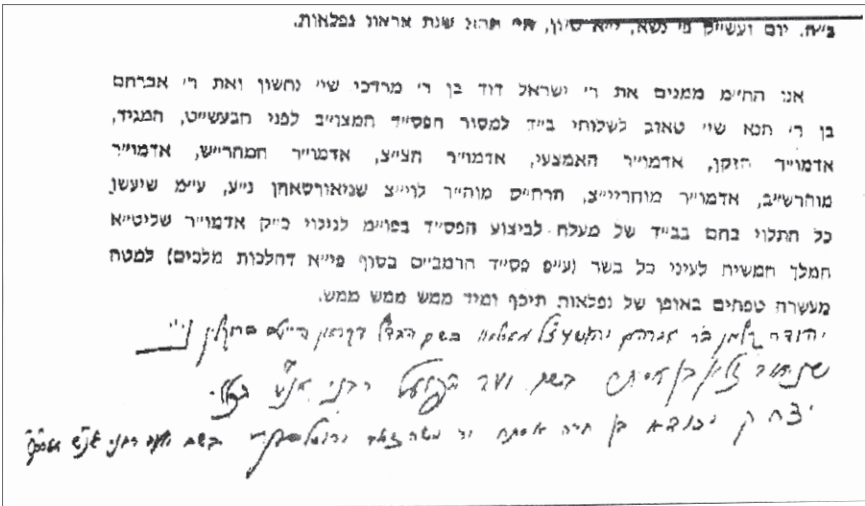 ב״ה. יום ועש״ק פ׳ נשא, י״א סיון, ה׳ תהא שנת אראנו נפלאות.
אנו הח״מ ממנים את ר׳ ישראל דוד בן ר׳ מרדכי שי׳ נחשון ואת ר׳ אברהם
בן ר׳ חנא שי׳ טאוב לשלוחי ב״ד למסור הפס״ד המצו״ב לפני הבעש״ט, המגיד,
אדמו״ר הזקן, אדמו״ר האמצעי, אדמו״ר הצ״צ, אדמו״ר המהר״ש, אדמו״ר
מוהרש״ב, אדמו״ר מוהריי״צ, הרה״ח מוה״ר לוי״צ שניאורסאהן נ״ע, ע״מ שיעשו
כל התלוי בהם בב״ד של מעלה לביצוע הפס״ד בפו״מ לגילוי כ״ק אדמו״ר שליט״א
המלך המשיח לעיני כל בשר (ע״פ פס״ד הרמב״ם בסוף פי״א דהלכות מלכים) למטה
מעשרה טפחים באופן של נפלאות תיכף ומיד ממש ממש ממש.
יהודה קלמן בר אברהם יהושע בשם הבד״ל
בשם ועד הפועל רבני אנ״ש
יצחק יהודא בן בשם ועד רבני אנ״ש